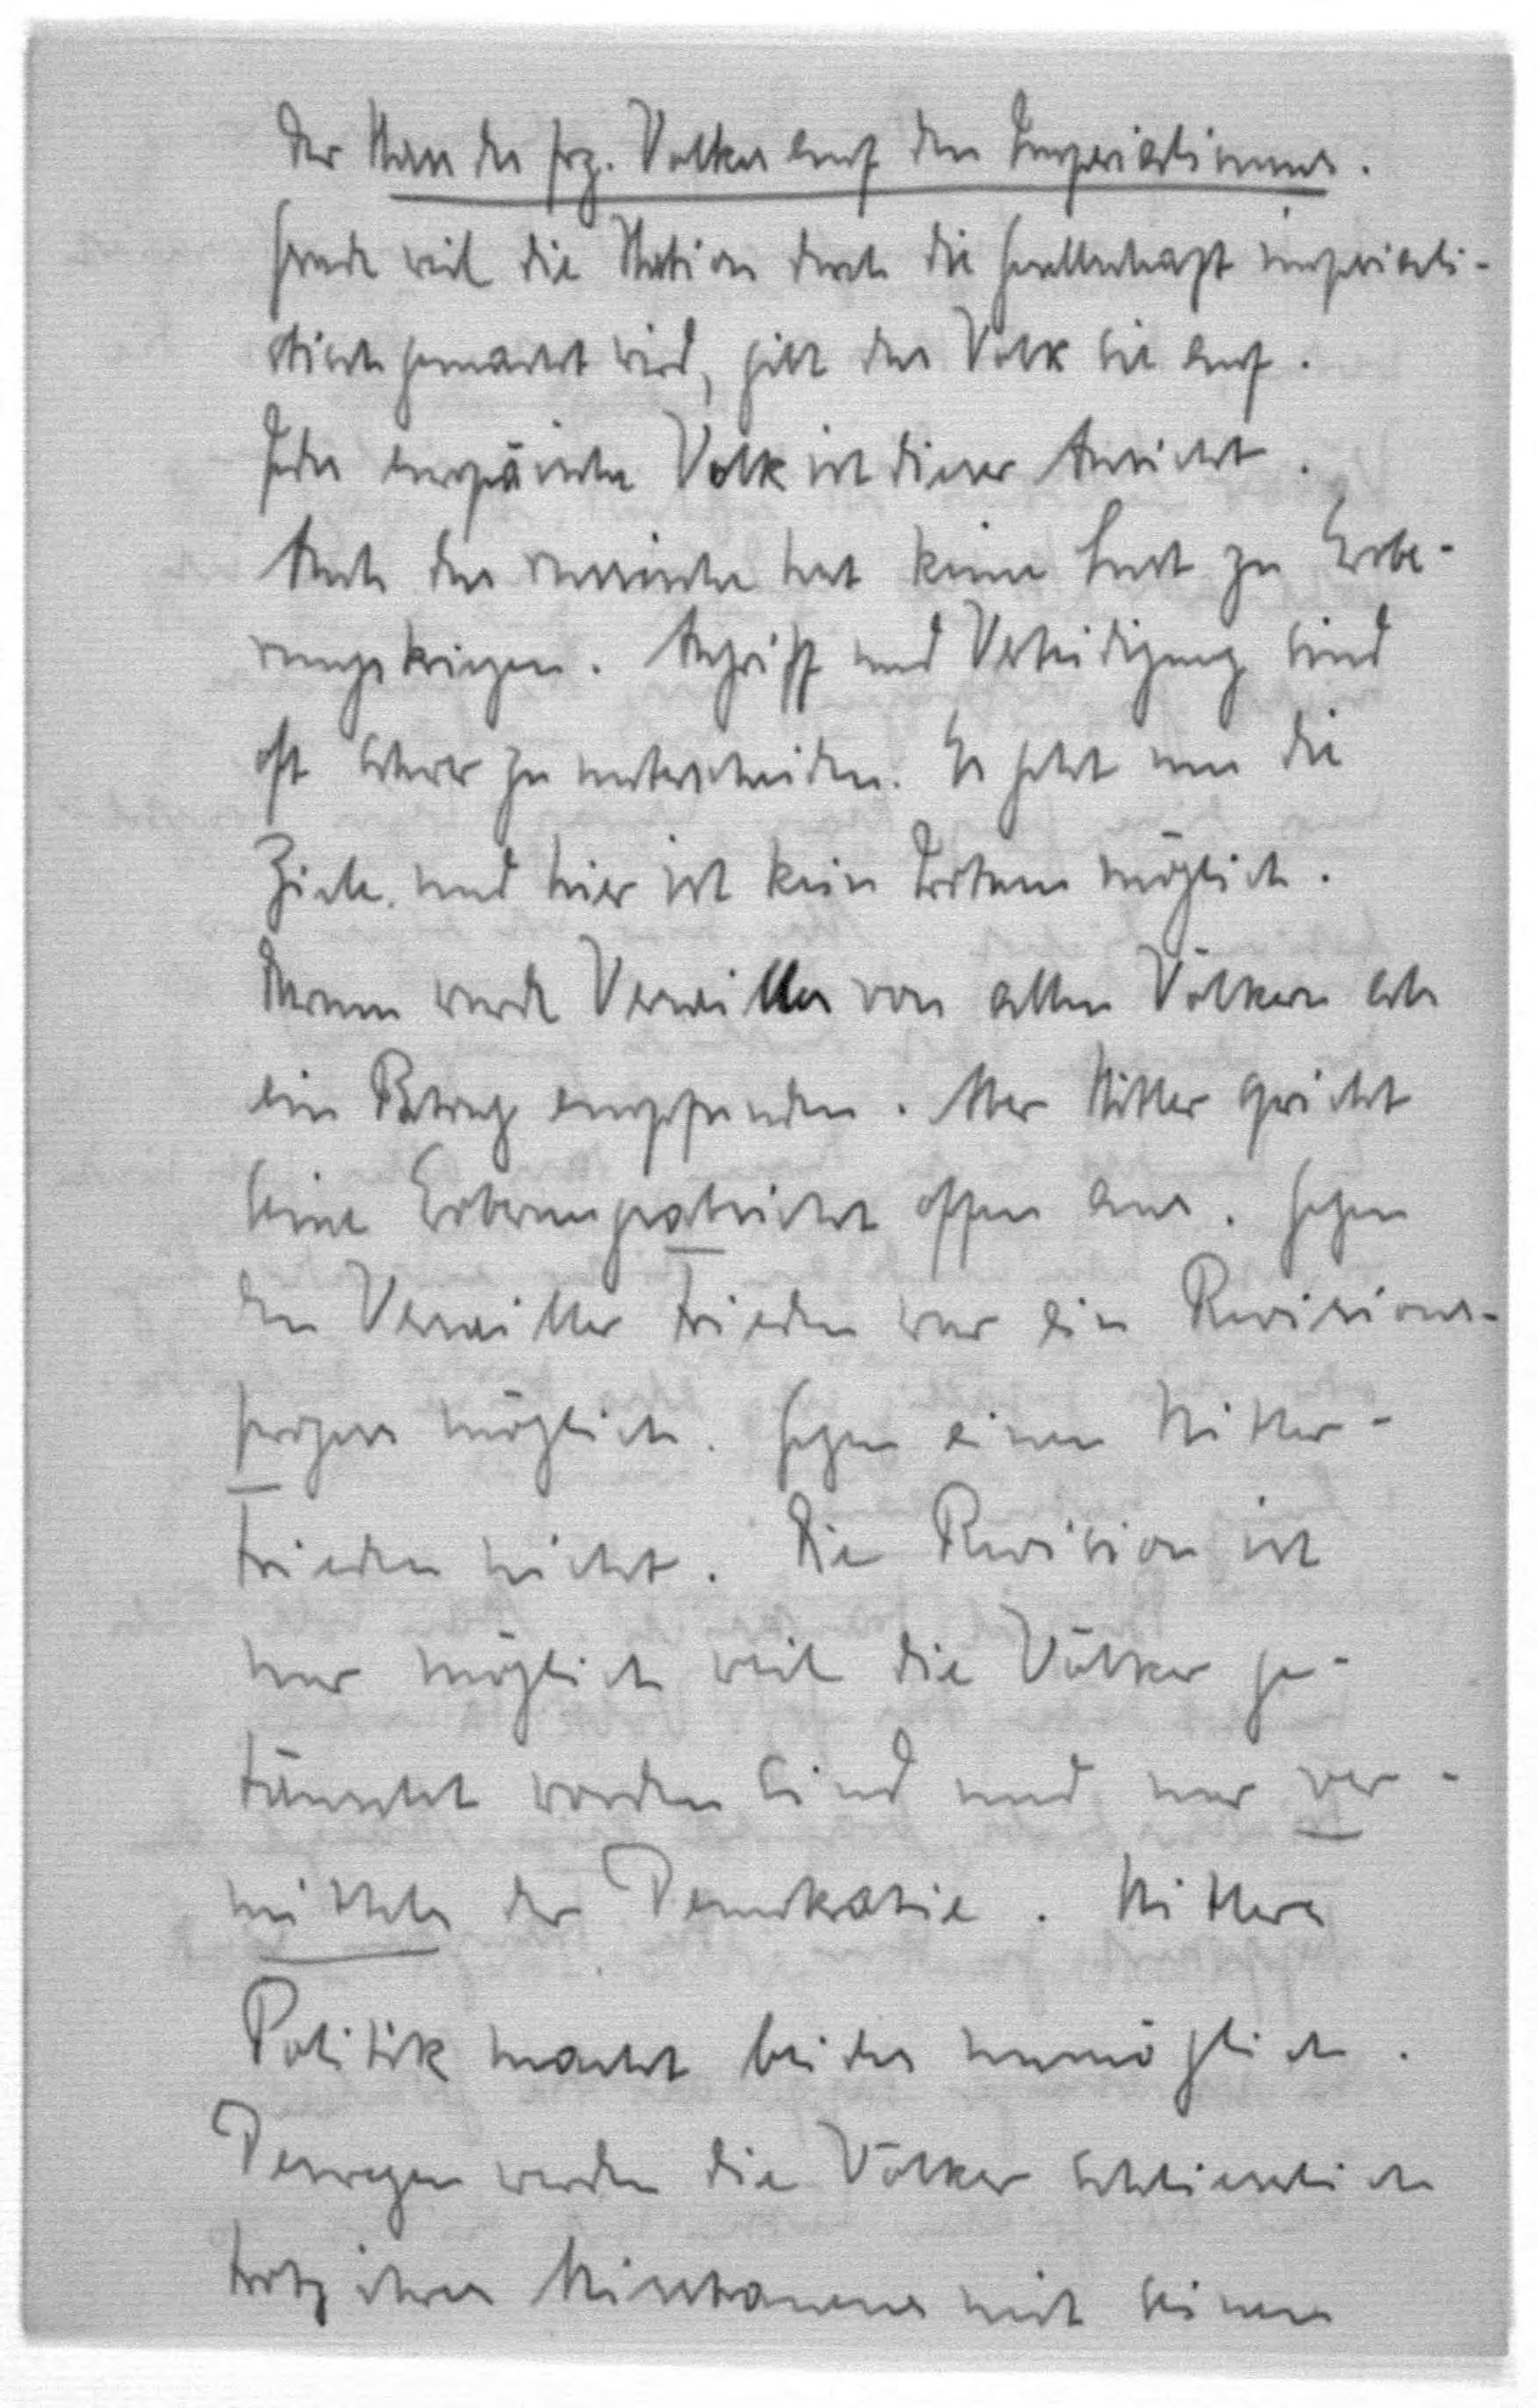 Der Hass des frz. Volkes auf den Imperialismus.
Grade weil die Nation durch die Gesellschaft imperiali-
stisch gemacht wird, gibt das Volk sie auf.
Jedes europäische Volk ist dieser Ansicht.
Auch das russische hat keine Lust zu Erobe-
rungskriegen. Angriff und Verteidigung sind
oft schwer zu unterscheiden. Es geht um die
Ziele. und hier ist kein Irrtum möglich.
Darum wurde Versailles von allen Völkern als
ein Betrug empfunden. Aber Hitler spricht
seine Eroberungsabsicht offen aus. Gegen
den Versailler Frieden war ein Revisions-
prozess möglich. Gegen einen Hitler-
Frieden nicht. Die Revision ist
nur möglich weil die Völker ge-
täuscht worden sind und nur ver-
mittels der Demokratie. Hitlers
Politik macht beides unmöglich.
Deswegen werden die Völker schliesslich
trotz ihres Misstrauens mit seinen